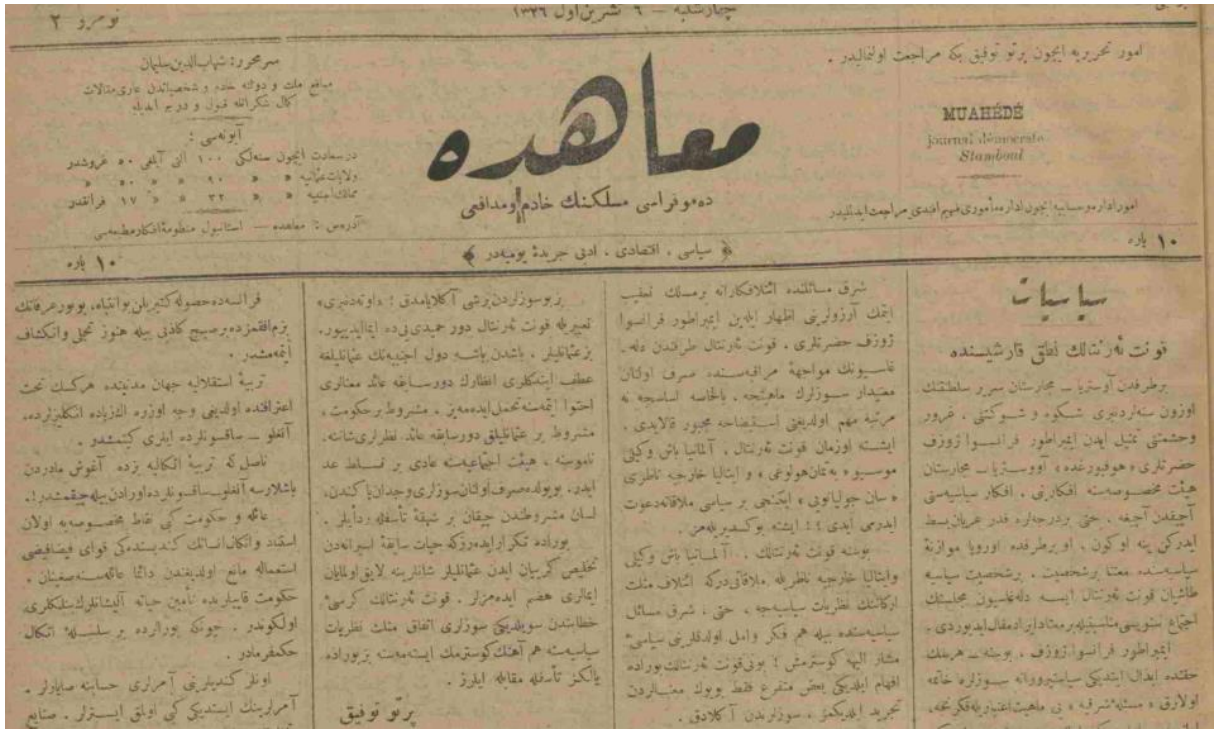 چهارشنبه — ٦ تشرین اول ١٣٢٦
نومرو ٢
امور تحریریه ایچون پرتو توفیق بكه مراجعت اولنمالیدر .
MUAHÉDÉ
journal démocrate
Stamboul
امور اداره و حسابیه ایچون اداره مأموری فهیم افندی یه مراجعت ایدلملیدر
١٠ پاره
معاهده
ده موقراسی مسلكنك خادم و مدافعی
سرمحرر : شهاب الدین سلیمان
منافع ملك و دولته خادم و شخصیاتدن عاری مقالات
كمال شكرانله قبول و درج ایدیلیر
آبونه سی :
درسعادت ایچون سنه لكی ١٠٠ آلتی آیلغی ٥٠ غروشدر
ولایات عثمانیه » » ٩٠ » » ٥٠ »
ممالك اجنبیه » » ٣٢ » » ١٧ فرانقدر
آدرس : معاهده — استانبول منظومهٔ افكار مطبعه سی
١٠ پاره
﴿ سیاسی ، اقتصادی ، ادبی جریدهٔ یومیه در ﴾
سیاسیات
قونت ئه رنتالك نطقی قارشیسنده
برطرفدن آوستریا ــ مجارستان سریر سلطنتك
اوزون سنه لردنبری شكوه و شوكتی ، غرور
وحشمتی تمثیل ایدن ایمپراطور فرانسوا ژوزف
حضرتلری » هوفبورغده » آووستریا ــ مجارستان
هیئت مخصوصه سنه افكارینی ، افكار سیاسیه سنی
آچیقدن آچیغه ، حتی بردرجه لره قدر عریان بسط
ایدركن ینه اوكون ، اوبرطرفده اوروپا موازنهٔ
سیاسیه سنده معتنا برشخصیت ، برشخصیت سیاسیه
طاشیان قونت ئه رنتال ایسه دله غاسیون مجلسنك
ایمپراطور فرانسوا ژوزف ، بوسنه ــ هرسك
حقنده
اولارق » مسئلهٔ شرقیه » نی
شرق مسائلنده ائتلافكارانه برمسلك تعقیب
ایتمك آرزولرینی اظهار ایله ین ایمپراطور فرانسوا
ژوزف حضرتلری ، قونت ئه رنتال طرفندن دله ـ
غاسیونك مواجههٔ مراقبه سنده صرف اولنان
سوزلرك ماهیتجه ، بالخاصه اساسجه نه
مرتبه مهم اولدیغنی استیضاحه مجبور قالایدی ،
ایشته اوزمان قونت ئه رنتال ، آلمانیا باش وكیلی
موسیو » بتمان هولوغی » و ایتالیا خارجیه ناظری
» سان جولیانویی » ایكنجی بر سیاسی ملاقاته دعوت
ایدرمی ایدی ؟! ایشته بوكسدیریله مز .
بوسنه قونت ئه رنتالك ، آلمانیا باش وكیلی
وایتالیا خارجیه ناظریله ملاقاتی دركه ائتلاف مثلث
اركاننك نظریات سیاسیه جه ، حتی ، شرق مسائل
سیاسیه سنده بیله هم فكر و امل اولدقلرینی
مشار الیه كوسترمش ! بونی قونت ئه رنتالك بوراده
افهام ایلدیكی بعض متفرع فقط بویوك معنالردن
تجرید ایلدیكمز ، سوزلرندن آكلادق .
بز بو سوزلردن برشی آكلایامدق ؛ داوته دنبری»
تعبیریله قونت ئه رنتال دور حمیدی یی ده ایما ایدییور.
بز عثمانلیلر ، باشدن باشه دول اجنبیه نك عثمانلیلغه
عطف ایتدكلری انظارك دور سابقه عائد معنالری
احتوا ایتمه سنه تحمل ایده مه یز . مشروط بر حكومت ،
مشروط بر عثمانلیلق دور سابقه عائد نظرلری شاننه،
ناموسنه ، هیئت اجتماعیه سنه عادی بر تسلط عد
ایدر. بویولده صرف اولنان سوزلری وجدان پاكندن،
لسان مشروطندن چیقان بر شهقهٔ تأسفله رد ایلر .
بوراده تكرار ایده رزكه حیات سابقهٔ اسیرانه دن
تخلیص گریبان ایدن عثمانلیلر شانلرینه لایق اولمایان
ایمالری هضم ایده مزلر . قونت ئه رنتالك كرسیٔ
خطابتدن سویلدیكی سوزلری اتفاق مثلث نظریات
سیاسیه سنه هم آهنك كوسترمك ایسته مه سنه بز بوراده
یالكز تأسفله مقابله ایلرز .
پرتو توفیق
فرانسه ده حصوله كتیریلن بو انتباه، بو نور عرفانك
بزم افقمزده بر صبح كاذبی بیله هنوز تجلی و انكشاف
ایتمه مشدر .
تربیهٔ استقلالیه جهان مدنیتده هركسك تحت
اعترافنده اولدیغی وجه اوزره اك زیاده انكلیزلرده،
آنغلو ــ ساقسونلرده ایلری كیتمشدر .
ناصل كه تربیهٔ اتكالیه بزده آغوش مادردن
باشلارسه آنغلو ــ ساقسونلرده اورادن بیله چیقمشدر!.
عائله و حكومت كبی نقاط مخصوصه یه اولان
استناد و اتكال انسانك كندیسنده كی قوای فیضافیضی
استعماله مانع اولدیغندن دائما عائله سنه صیغینان ،
حكومت قاپیلرنده تأمین حیاته آلیشانلرك سلكلری،
اولكوندر . چونكه بورالرده بر سلسلهٔ اتكال
حكمفرمادر .
اونلر كندیلرینی آمرلری حسابنه صایارلر .
آمرلرینك ایستدیكی كبی اولمق ایسترلر . صنایع